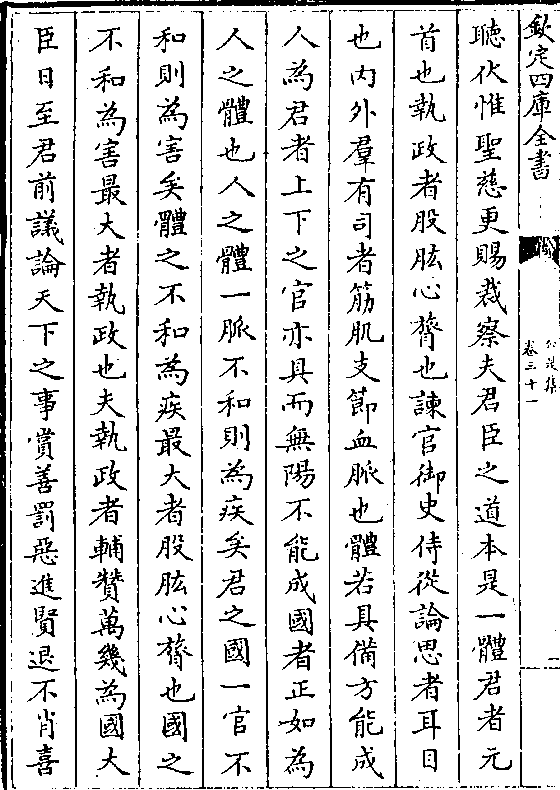 欽定四庫全書
卷三十一
聽伏惟聖慈更賜裁察夫君臣之道本是一體君者元
首也執政者股肱心膂也諫官御史侍從論思者耳目
也内外羣有司者筋肌支節血脈也體若具備方能成
人為君者上下之官亦具而無陽不能成國者正如為
人之體也人之體一脈不和則為疾矣君之國一官不
和則為害矣體之不和為疾最大者股肱心膂也國之
不和為害最大者執政也夫執政者輔贊萬幾為國大
臣日至君前議論天下之事賞善罰惡進賢退不肖喜